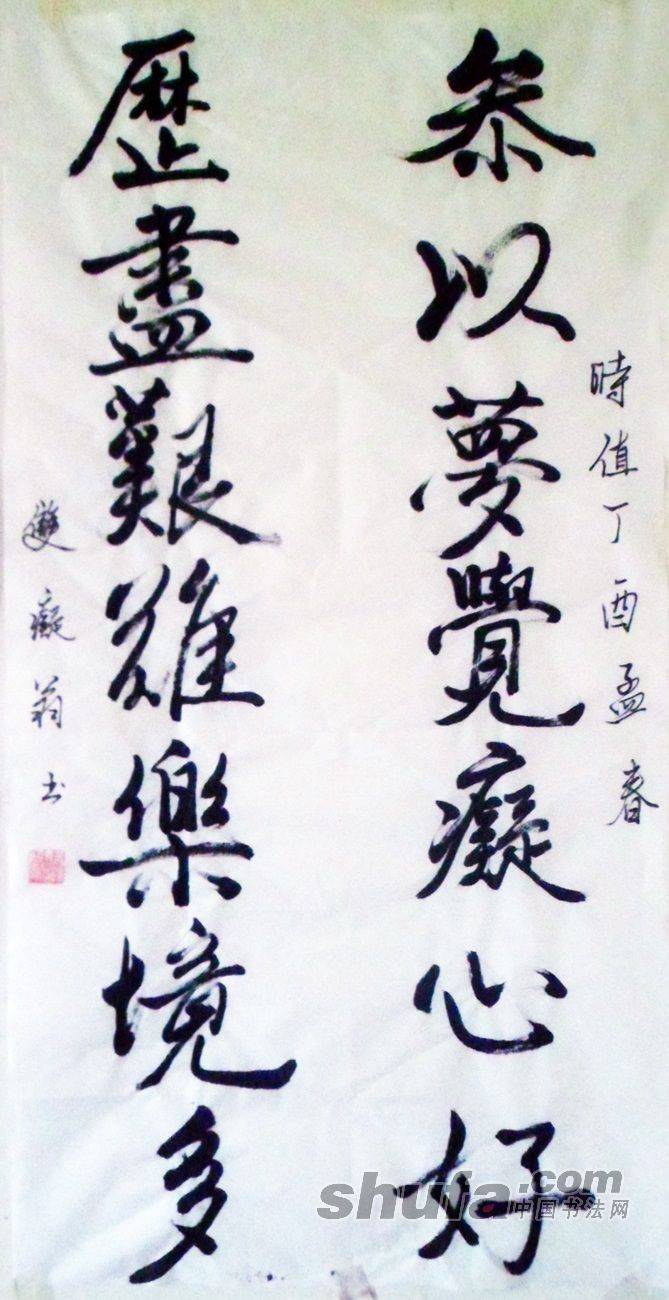 時值丁酉孟春
参以夢覺癡心好
歷盡艱難樂境多
雙癡翁书
shufa.com
中国书法网